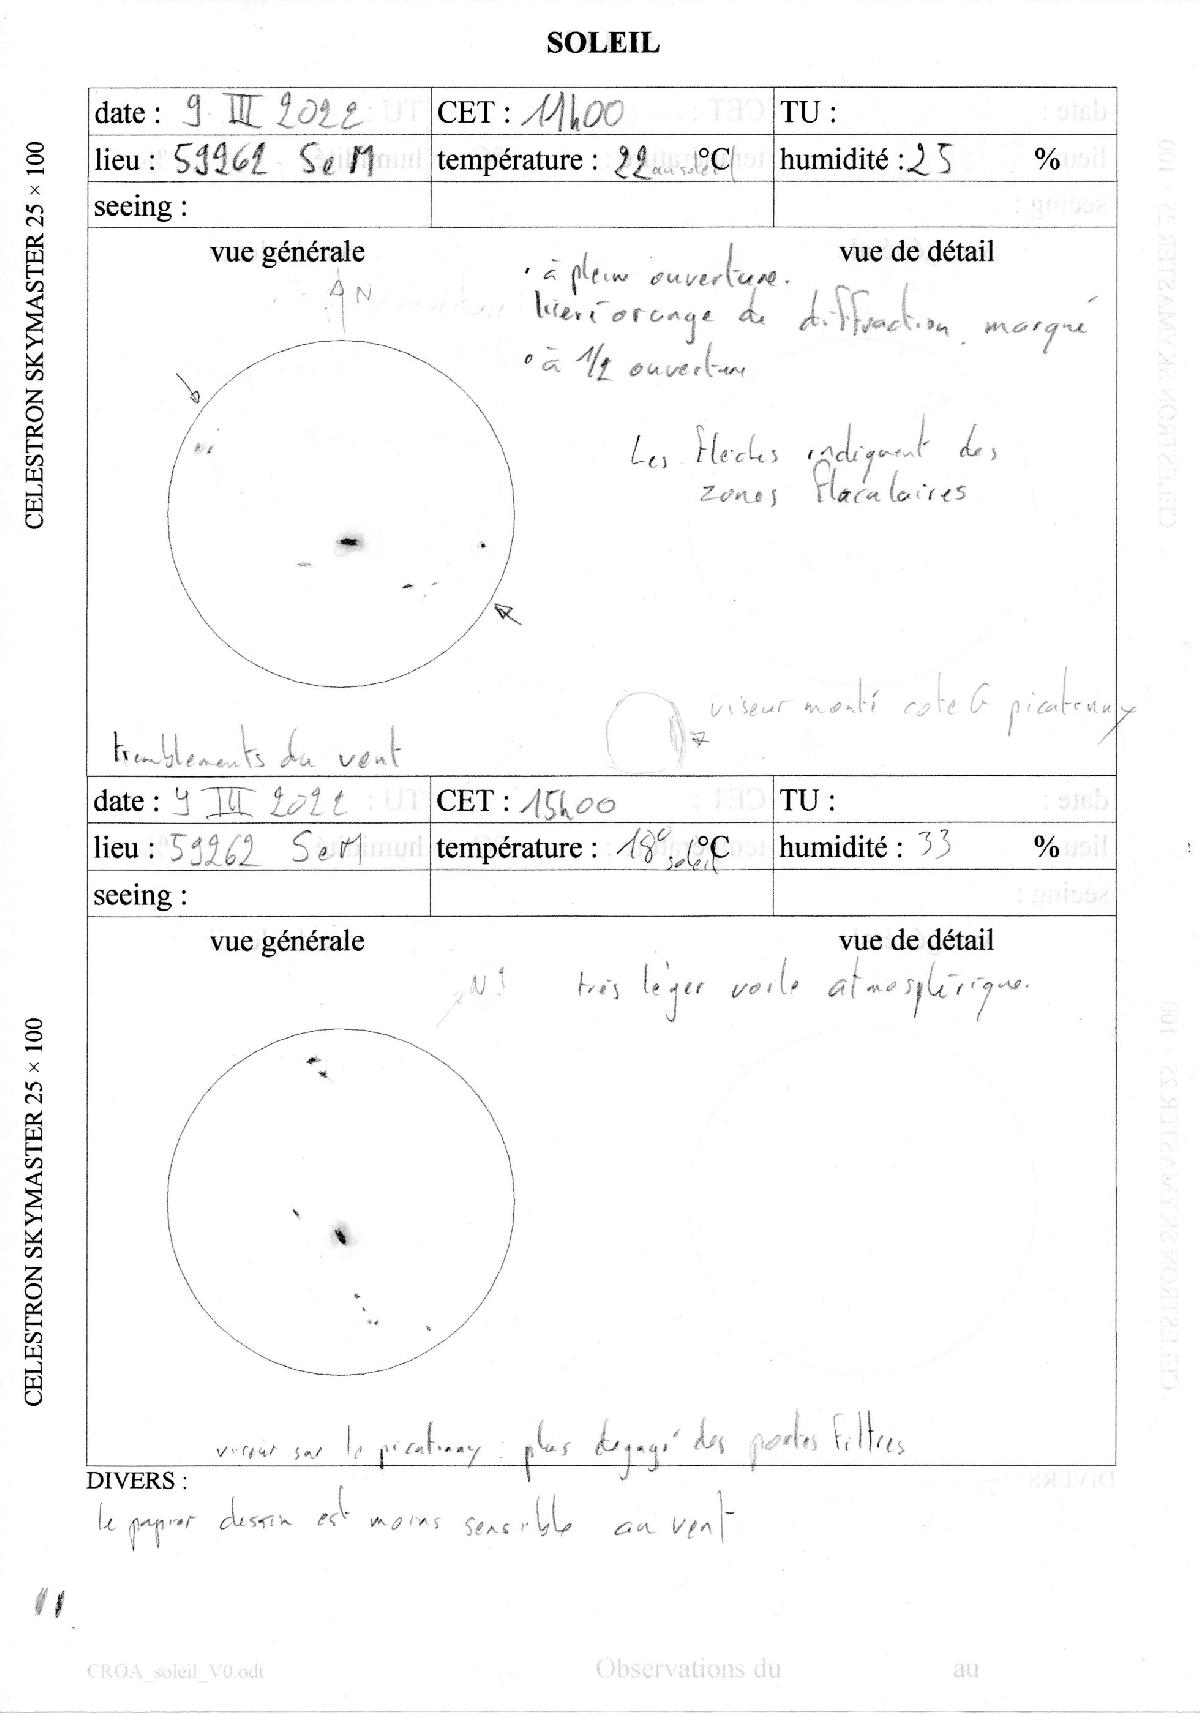 SOLEIL
date : 9 III 2022 CET : 11h00 TU :
lieu : 59262 SeM température : 22 au soleil °C humidité : 25 %
seeing :
CELESTRON SKYMASTER 25 × 100
vue générale vue de détail
N
• à plein ouverture.
orange de diffraction marqué
• à 1/2 ouverture
Les flèches indiquent des
zones flaculaires
viseur monté cote G picatinny
tremblements du vent
date : 9 III 2022 CET : 15h00 TU :
lieu : 59262 SeM température : 18° soleil °C humidité : 33 %
seeing :
CELESTRON SKYMASTER 25 × 100
vue générale vue de détail
très léger voile atmosphérique.
viseur sur le picatinny : plus dégagé des portes filtres
DIVERS :
le papier dessin est moins sensible au vent
11
CROA_soleil_V0.odt Observations du au